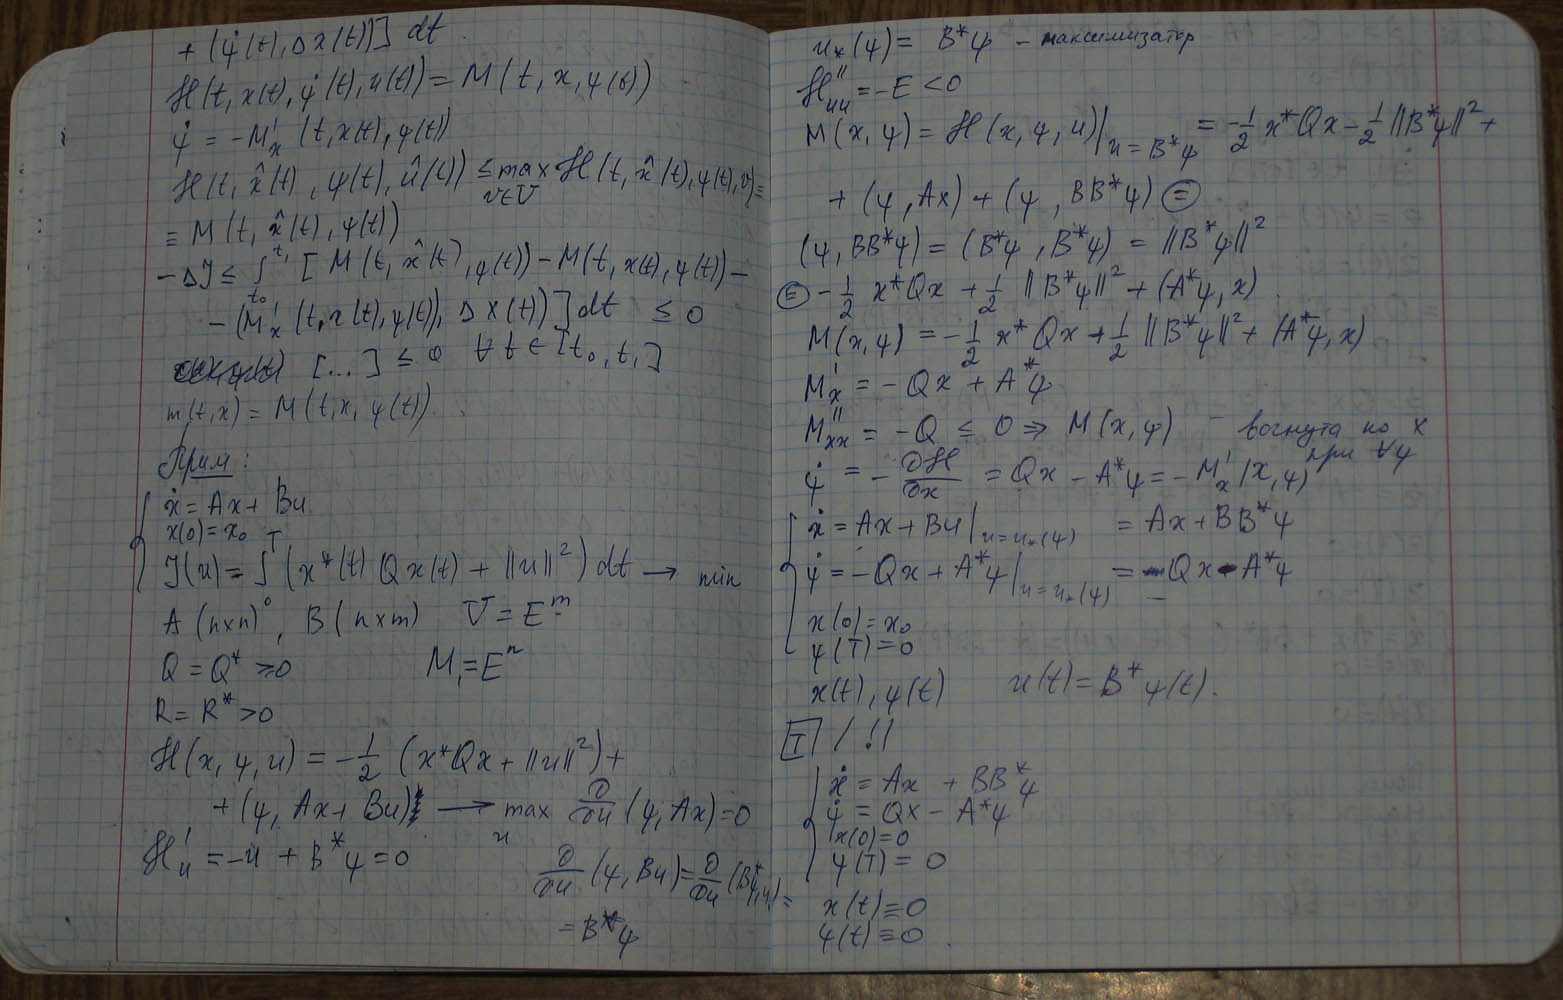 + (ψ̇(t), Δx(t))] dt.
ℋ(t, x(t), ψ(t), u(t)) = M(t, x, ψ(t))
ψ̇ = -M'ₓ(t, x(t), ψ(t))
ℋ(t, x̂(t), ψ(t), û(t)) ≤ max_{v∈V} ℋ(t, x̂(t), ψ(t), v) =
= M(t, x̂(t), ψ(t))
-ΔJ ≤ ∫_{t₀}^{t₁} [M(t, x̂(t), ψ(t)) - M(t, x(t), ψ(t)) -
- (M'ₓ(t, x(t), ψ(t)), Δx(t))] dt ≤ 0
[...] ≤ 0 ∀t ∈ [t₀, t₁]
m(t, x) = M(t, x, ψ(t)).
Прим:
ẋ = Ax + Bu
x(0) = x₀
J(u) = ∫₀ᵀ (x*(t) Qx(t) + ||u||²) dt → min
A (n×n), B (n×m) V = Eᵐ
Q = Q* ≥ 0 M₁ = Eⁿ
R = R* > 0
ℋ(x, ψ, u) = -½ (x*Qx + ||u||²) +
+ (ψ, Ax + Bu) → max_u ∂/∂u (ψ, Ax) = 0
ℋ'ᵤ = -u + B*ψ = 0
∂/∂u (ψ, Bu) = ∂/∂u (B*ψ, u) =
= B*ψ
u*(ψ) = B*ψ - максимизатор
ℋ''ᵤᵤ = -E < 0
M(x, ψ) = ℋ(x, ψ, u)|_{u = B*ψ} = -½ x*Qx - ½ ||B*ψ||² +
+ (ψ, Ax) + (ψ, BB*ψ) ⊜
(ψ, BB*ψ) = (B*ψ, B*ψ) = ||B*ψ||²
⊜ -½ x*Qx + ½ ||B*ψ||² + (A*ψ, x).
M(x, ψ) = -½ x*Qx + ½ ||B*ψ||² + (A*ψ, x)
M'ₓ = -Qx + A*ψ
M''ₓₓ = -Q ≤ 0 ⇒ M(x, ψ) - вогнута по x
при ∀ψ
ψ̇ = -∂ℋ/∂x = Qx - A*ψ = -M'ₓ(x, ψ)
ẋ = Ax + Bu|_{u=u*(ψ)} = Ax + BB*ψ
ψ̇ = -Qx + A*ψ|_{u=u*(ψ)} = Qx - A*ψ
x(0) = x₀
ψ(T) = 0
x(t), ψ(t) u(t) = B*ψ(t).
T / !/
ẋ = Ax + BB*ψ
ψ̇ = Qx - A*ψ
x(0) = 0
ψ(T) = 0
x(t) ≡ 0
ψ(t) ≡ 0